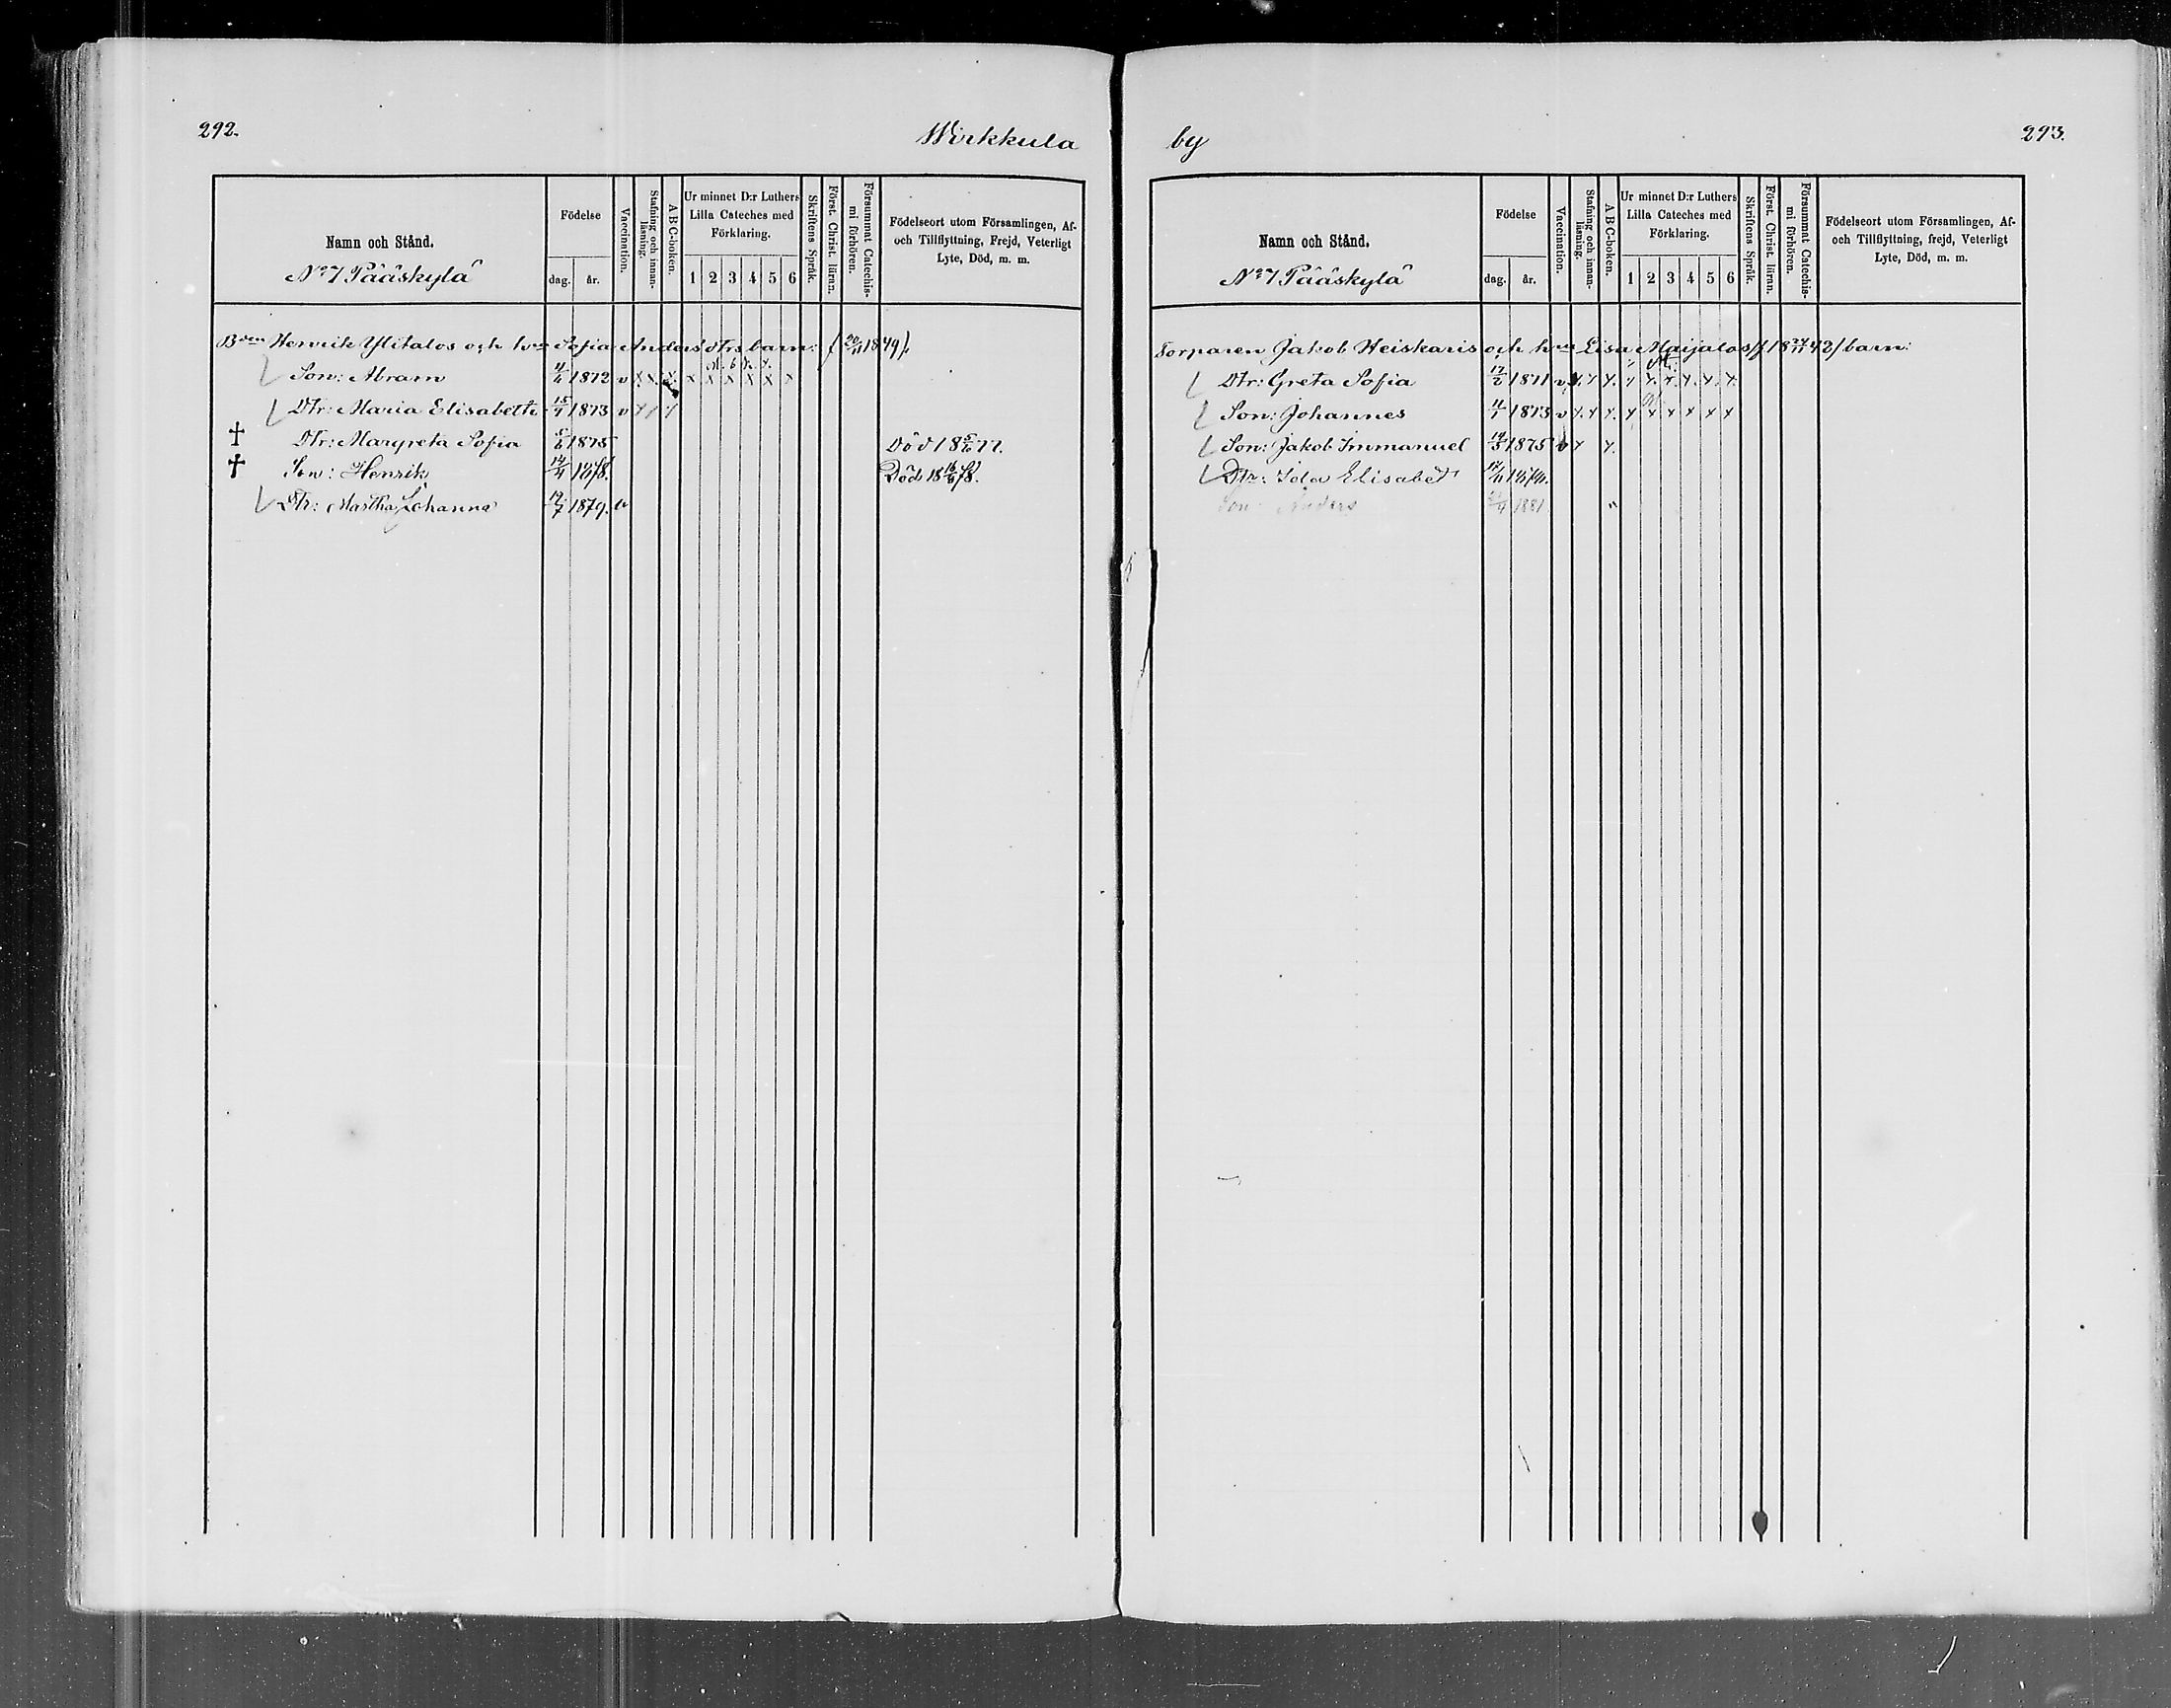 292.
Wirkkula
Namn och Stånd.
No 7 Pääskylä
Födelse
dag.
år.
Vaccination.
Stafning och innan-
läsning.
A B C-boken.
Ur minnet D:r Luthers
Lilla Cateches med
Förklaring.
1 2 3 4 5 6
Skriftens Språk.
Först. Christ. läran.
Försummat Catechis-
mi förhören.
Födelseort utom Församlingen, Af-
och Tillflyttning, Frejd, Veterligt
Lyte, Död, m. m.
Henrik Ylitalos och Sofia Andersdtrs barn: (20/11 1849).
Son: Abram 1872 v x x x x x x x x x
Dtr: Maria Elisabeth 15/7 1873 v
† Dtr: Margreta Sofia 5/6 1875 Död 18 77.
† Son: Henrik 1878. Död 18 78.
Dtr: Martha Johanna 12/7 1879. v
by
293.
Namn och Stånd.
No 7 Pääskylä
Födelse
dag.
år.
Vaccination.
Stafning och innan-
läsning.
A B C-boken.
Ur minnet D:r Luthers
Lilla Cateches med
Förklaring.
1 2 3 4 5 6
Skriftens Språk.
Först. Christ. läran.
Försummat Catechis-
mi förhören.
Födelseort utom Församlingen, Af-
och Tillflyttning, frejd, Veterligt
Lyte, Död, m. m.
Torparen Jakob Heiskaris och Lisa Maijalas /f 18 27/11 42/ barn:
Dtr: Greta Sofia 17/2 1871 v x x x x x x x x x
Son: Johannes 11/1 1873 v x x x x x x x x x
Son: Jakob Immanuel 1875 v x x
Dtr: Ida Elisabet
Son: Anders 1881